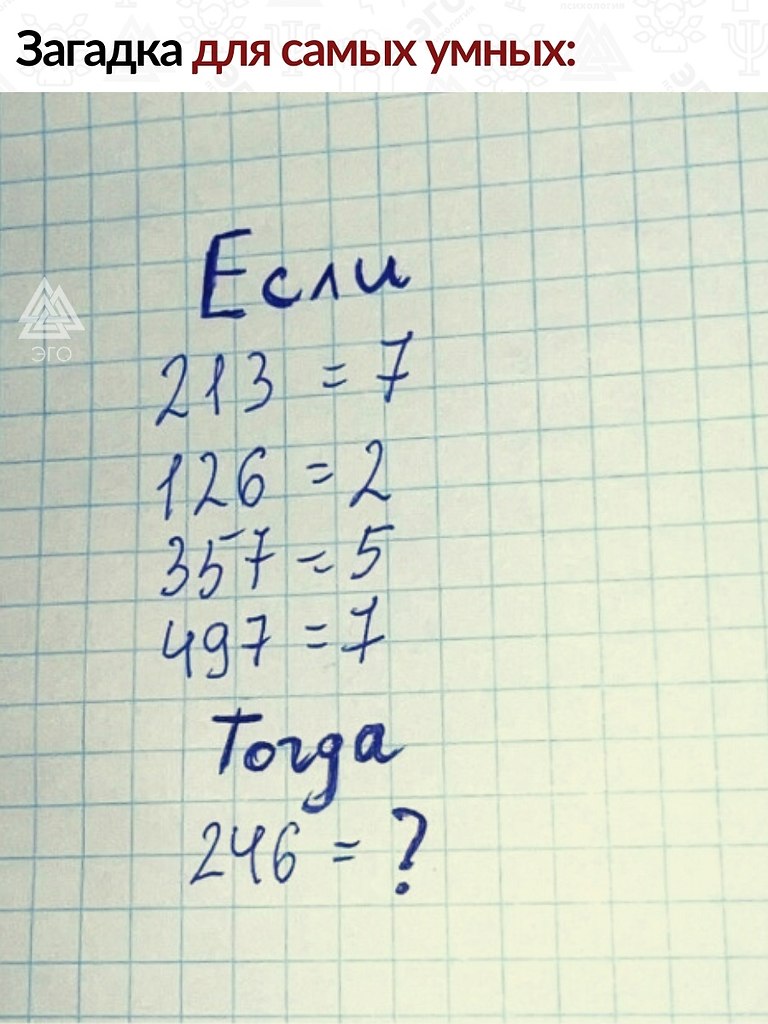 Загадка для самых умных:
Если
213 = 7
126 = 2
357 = 5
497 = 7
Тогда
246 = ?
ЭГО